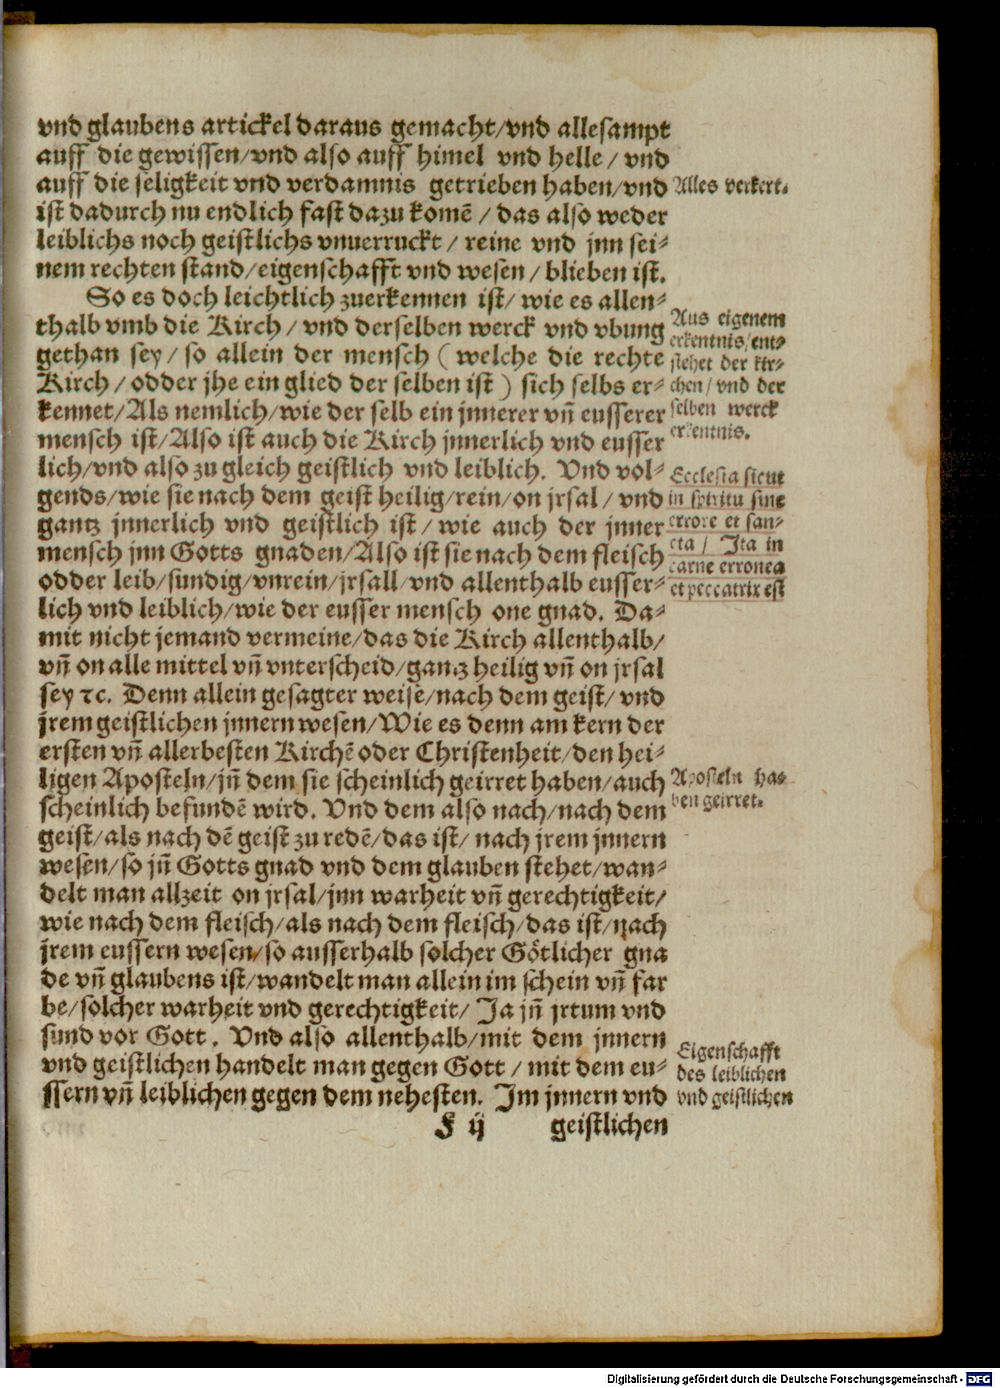 vnd glaubens artickel daraus gemacht/vnd allesampt
auff die gewissen/vnd also auff himel vnd helle / vnd
auff die seligkeit vnd verdamnis getrieben haben/vnd
Alles verkert.
ist dadurch nu endlich fast dazu komē / das also weder
leiblichs noch geistlichs vnuerruckt / reine vnd jnn sei⸗
nem rechten stand/eigenschafft vnd wesen / blieben ist.
So es doch leichtlich zuerkennen ist/ wie es allen⸗
thalb vmb die Kirch / vnd derselben werck vnd vbung
gethan sey / so allein der mensch ( welche die rechte
Kirch / odder jhe ein glied der selben ist ) sich selbs er⸗
kennet/Als nemlich/wie der selb ein jnnerer vñ eusserer
mensch ist/Also ist auch die Kirch jnnerlich vnd eusser
Aus eigenem
erkentnis/ent⸗
stehet der kir⸗
chen/ vnd der
selben werck
erkentnis.
lich/vnd also zu gleich geistlich vnd leiblich. Vnd vol⸗
gends/wie sie nach dem geist heilig/rein/on jrsal / vnd
gantz jnnerlich vnd geistlich ist / wie auch der jnner
mensch jnn Gotts gnaden/Also ist sie nach dem fleisch
odder leib/sundig/vnrein/jrsall/vnd allenthalb eusser⸗
lich vnd leiblich/wie der eusser mensch one gnad. Da⸗
Ecclesia sicut
in spiritu sine
errore et san⸗
cta / Ita in
carne erronea
et peccatrix est
mit nicht jemand vermeine/das die Kirch allenthalb/
vñ on alle mittel vñ vnterscheid/gantz heilig vñ on jrsal
sey ꝛc. Denn allein gesagter weise/nach dem geist/ vnd
jrem geistlichen jnnern wesen/Wie es denn am kern der
ersten vñ allerbesten Kirchē oder Christenheit/den hei⸗
ligen Aposteln/jñ dem sie scheinlich geirret haben/auch
scheinlich befundē wird. Vnd dem also nach/nach dem
Aposteln ha⸗
ben geirret.
geist/als nach dē geist zu redē/das ist/ nach jrem jnnern
wesen/so jñ Gotts gnad vnd dem glauben stehet/wan⸗
delt man allzeit on jrsal/jnn warheit vñ gerechtigkeit/
wie nach dem fleisch/als nach dem fleisch/das ist/nach
jrem eussern wesen/so ausserhalb solcher Götlicher gna
de vñ glaubens ist/wandelt man allein im schein vñ far
be/solcher warheit vnd gerechtigkeit/ Ja jñ jrtum vnd
sund vor Gott. Vnd also allenthalb/mit dem jnnern
vnd geistlichen handelt man gegen Gott / mit dem eu⸗
ssern vñ leiblichen gegen dem nehesten. Im jnnern vnd
Eigenschafft
des leiblichen
vnd geistlichen
F ij geistlichen
Digitalisierung gefördert durch die Deutsche Forschungsgemeinschaft - DFG